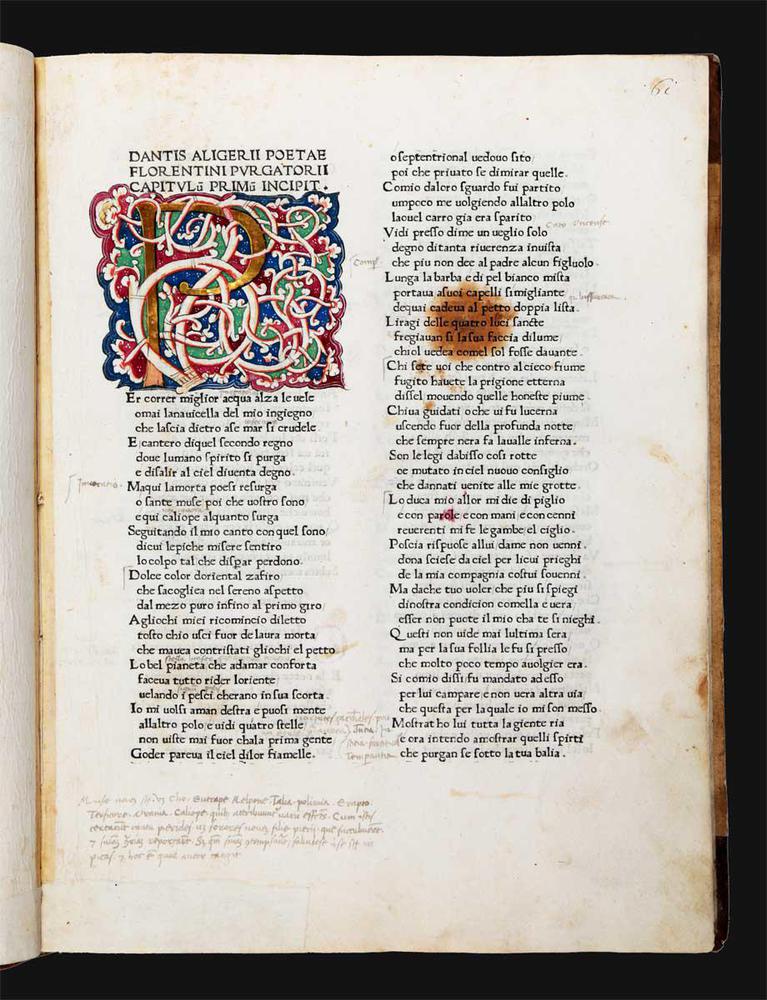 DANTIS ALIGERII POETAE
FLORENTINI PVRGATORII
CAPITVLū PRIMū INCIPIT.
P
Er correr miglior acqua alza le uele
omai lanauicella del mio ingiegno
che lascia dietro ase mar si crudele.
E cantero diquel secondo regno
doue lumano spirito si purga
e disalir al ciel diuenta degno.
Maqui lamorta poesi resurga
o sante muse poi che uostro sono
e qui caliope alquanto surga
Seguitando il mio canto con quel sono
dicui lepiche misere sentiro
lo colpo tal che dispar perdono.
Dolce color doriental zafiro
che sacoglica nel sereno aspetto
dal mezo puro infino al primo giro
A gliochi miei ricomincio diletto
tosto chio usci fuor de laura morta
che mauea contristati gliochi el petto
Lo bel pianeta che adamar conforta
faceua tutto rider loriente
uelando i pesci cherano in sua scorta.
Io mi uolsi aman destra e puosi mente
allaltro polo e uidi quatro stelle
non uiste mai fuor chala prima gente
Goder pareua il ciel dilor fiamelle.
o septentrional uedouo sito
poi che priuato se dimirar quelle.
Comio daloro sguardo fui partito
umpoco me uolgiendo allaltro polo
laouel carro gia era sparito
Vidi presso dime un ueglio solo
degno ditanta riuerenza inuista
che piu non dee al padre alcun figluolo.
Lunga la barba e di pel bianco mista
portaua asuoi capelli simigliante
dequai cadeua al petto doppia lista.
Li ragi delle quatro luci sancte
fregiauan si la sua faccia dilume
chiol uedea comel sol fosse dauante.
Chi sete uoi che contro al cieco fiume
fugito hauete la prigione etterna
dissel mouendo quelle honeste piume.
Chiua guidati o che ui fu lucerna
uscendo fuor della profunda notte
che sempre nera fa laualle inferna.
Son le legi dabisso cosi rotte
oe mutato inciel nuouo consiglio
che dannati uenite alle mie grotte.
Lo duca mio allor mi die di piglio
e con parole e con mani e con cenni
reuerenti mi fe le gambe el ciglio.
Poscia rispuose allui dame non uenni
dona sciese da ciel per licui prieghi
de la mia compagnia costui souenni.
Ma dache tuo uoler che piu si spiegi
dinostra condicion comella e uera
esser non puote il mio cha te si nieghi.
Questi non uide mai lultima sera
ma per la sua follia le fu si presso
che molto poco tempo auolgier era.
Si comio dissi fu mandato ad esso
per lui campare e non uera altra uia
che questa per laquale io mi son messo.
Mostrat ho lui tutta la giente ria
e ora intendo amostrar quelli spirti
che purgan se sotto la tua balia.